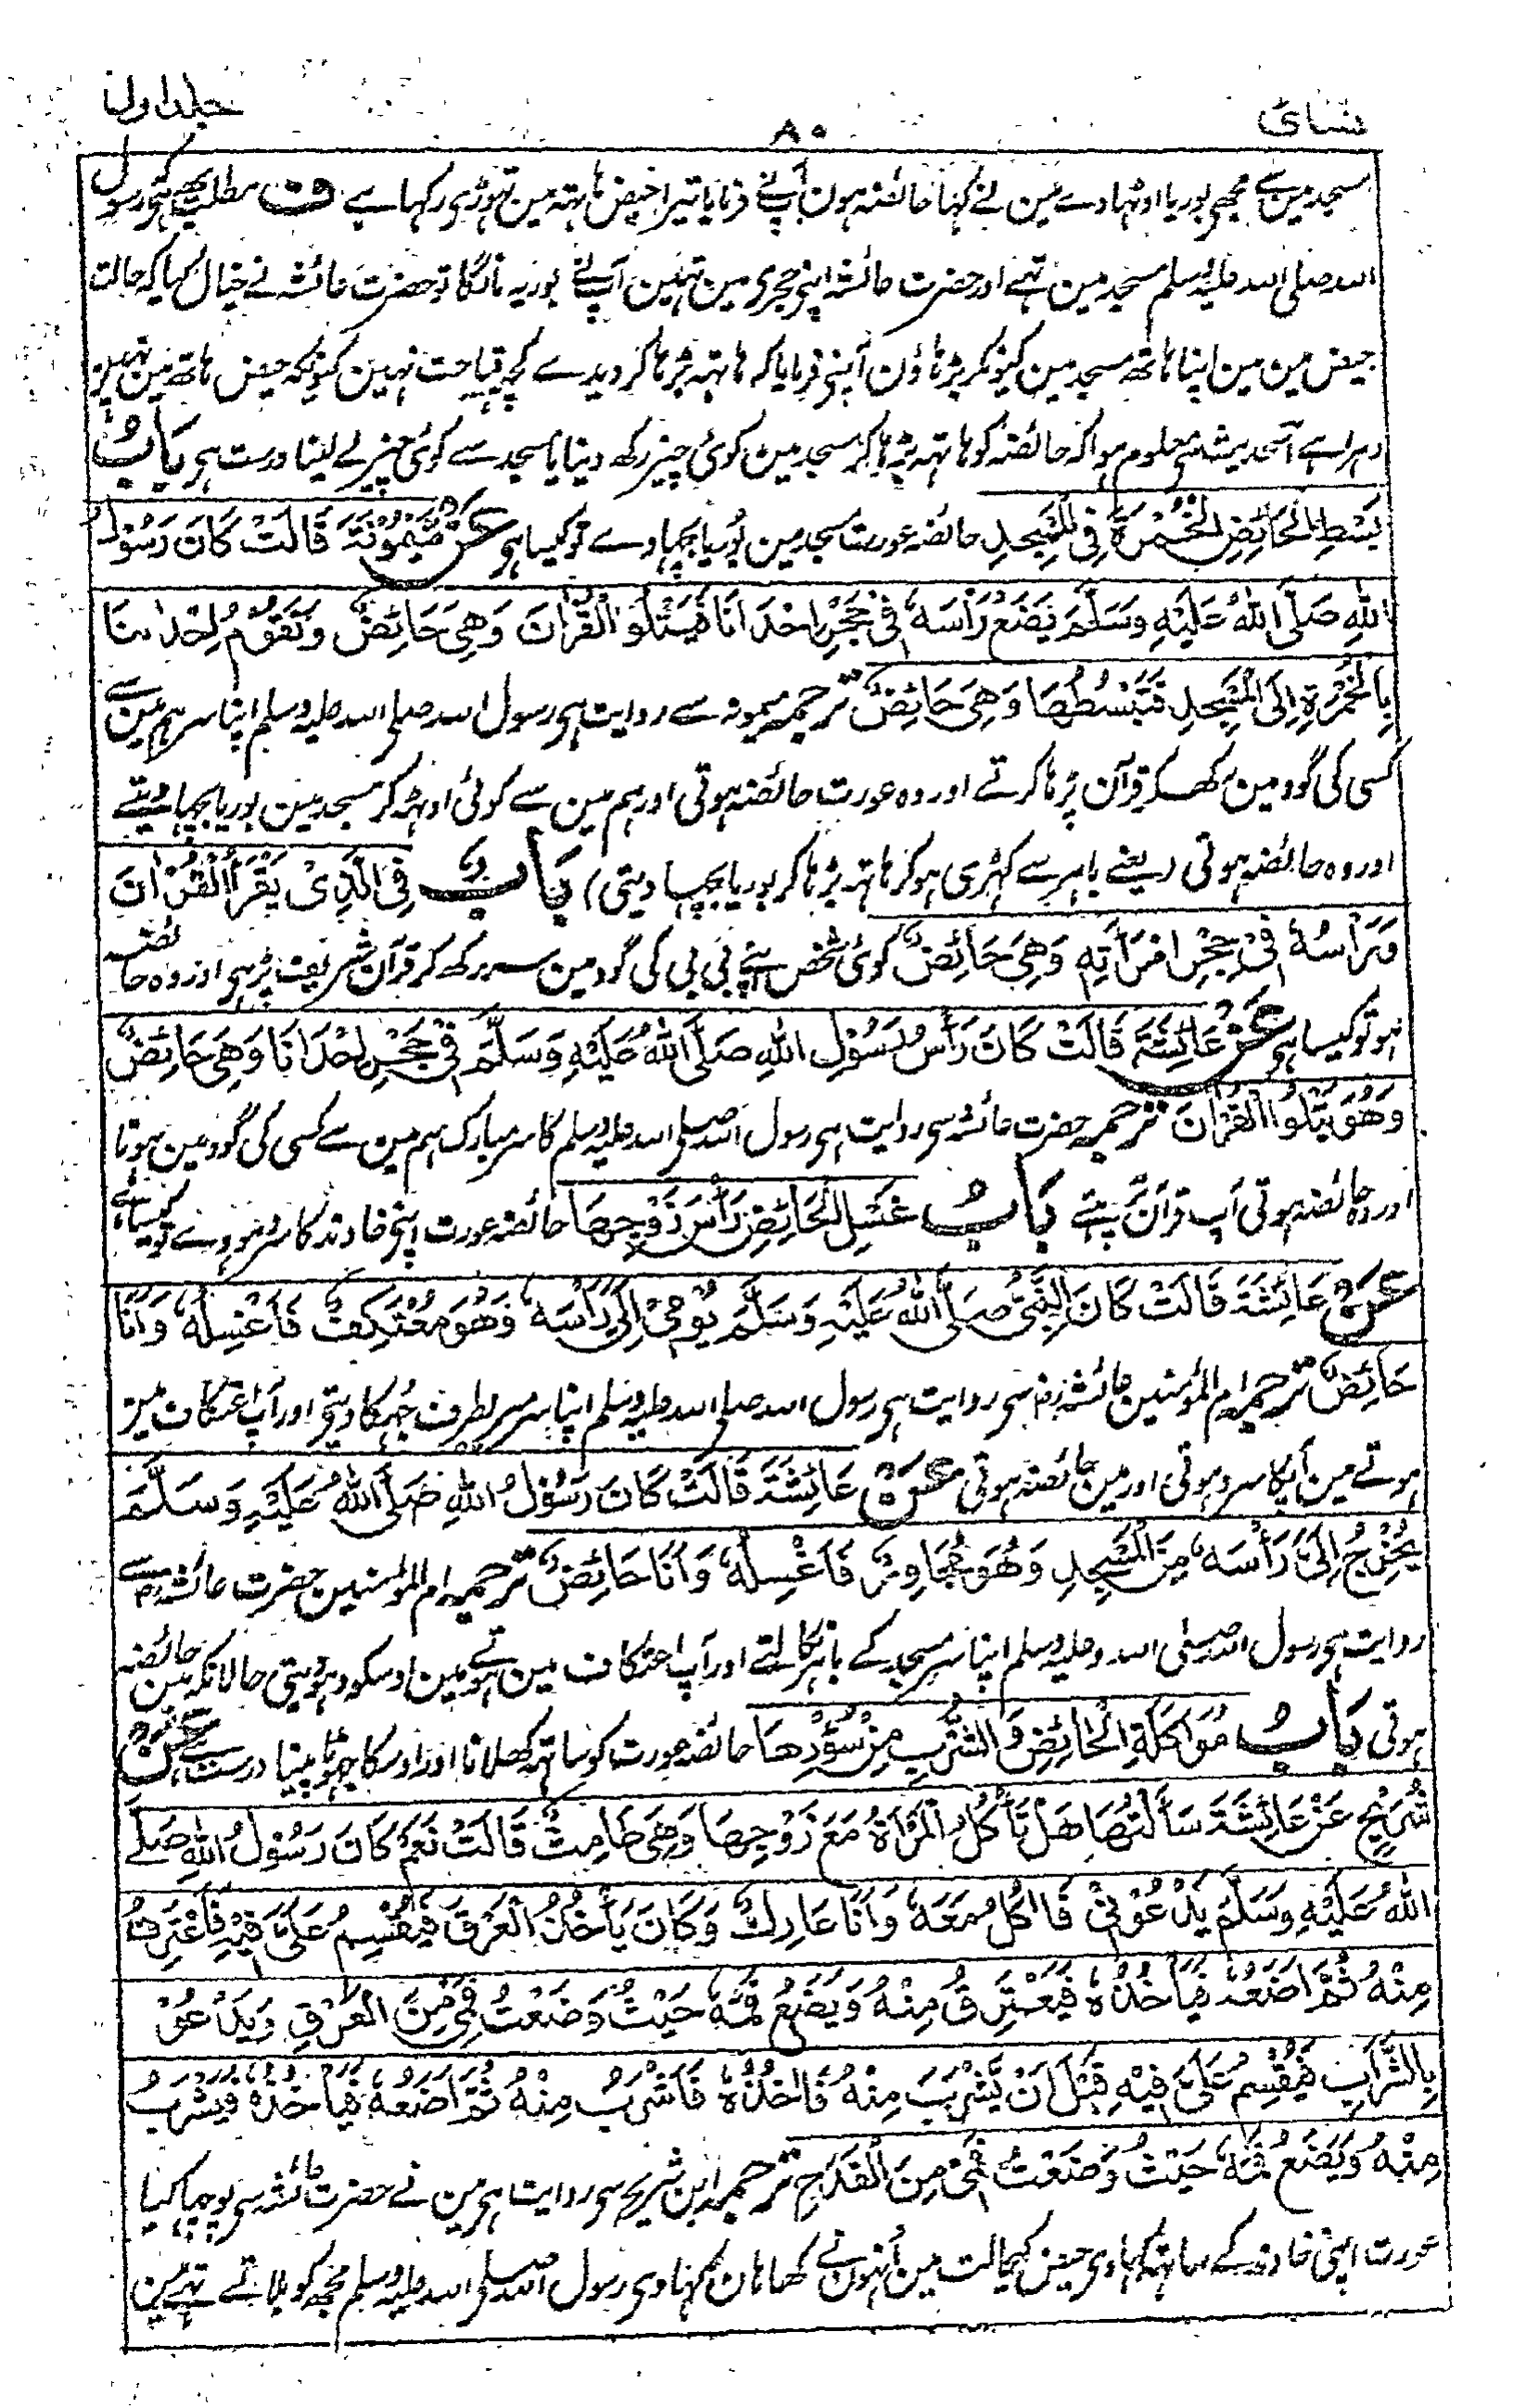 نسائی
۸۰
جلد اول
مسجد میں سے مجھے بوریا اوٹھا دے مین نے کہا حائضہ ہون آپنے فرمایا تیرا حیض ہاتہ مین تہوڑی رکہا ہے ف مطلب یہ ہے کہ رسول
اللہ صلی اللہ علیہ وسلم مسجد مین تہے اور حضرت عائشہ اپنی حجری مین تہین آپنے بوریہ مانگا تو حضرت عائشہ نے خیال کیا کہ حالت
حیض مین مین اپنا ہاتھ مسجد مین کیونکر بڑہاؤن آپنی فرمایا کہ ہاتہ بڑہا کر دیدے کچہ قباحت نہین کیونکہ حیض ہاتھ مین نہین
دہرا ہے اسحدیث سے معلوم ہوا کہ حائضہ کو ہاتہ بڑہا کر مسجد مین کوئی چیز رکھ دینا یا مسجد سے کوئی چیز لے لینا درست ہی بَابُ
بَسْطِ الْحَائِضِ الْخُمْرَةَ فِي الْمَسْجِدِ حائضہ عورت مسجد مین بوریا بچہاوے تو کیسا ہی عَنْ مَيْمُونَةَ قَالَتْ كَانَ رَسُوْلُ
اللهِ صَلَّى اللهُ عَلَيْهِ وَسَلَّمَ يَضَعُ رَأْسَهٗ فِيْ حَجْرِ اِحْدَانَا فَيَتْلُوا الْقُرْاٰنَ وَهِيَ حَائِضٌ وَتَقُوْمُ اِحْدٰىنَا
بِالْخُمْرَةِ اِلَى الْمَسْجِدِ فَتَبْسُطُهَا وَهِيَ حَائِضٌ ترجمہ میمونہ سے روایت ہی رسول اللہ صلی اللہ علیہ وسلم اپنا سر ہم مین سے
کسی کی گود مین رکھکر قرآن پڑہا کرتے اور وہ عورت حائضہ ہوتی اور ہم مین سے کوئی اوٹہہ کر مسجد مین بوریا بچہا دیتے
اور وہ حائضہ ہوتی (یعنے باہر سے کہڑی ہو کر ہاتہ بڑہا کر بوریا بچہا دیتی) بَابٌ فِي الَّذِيْ يَقْرَأُ الْقُرْاٰنَ
وَرَأْسُهٗ فِيْ حَجْرِ امْرَأَتِهٖ وَهِيَ حَائِضٌ کوئی شخص اپنے بی بی کی گود مین سر رکھ کر قرآن شریف پڑہی اور وہ حائضہ
ہو تو کیسا ہی عَنْ عَائِشَةَ قَالَتْ كَانَ رَأْسُ رَسُوْلِ اللهِ صَلَّى اللهُ عَلَيْهِ وَسَلَّمَ فِيْ حَجْرِ اِحْدَانَا وَهِيَ حَائِضٌ
وَهُوَ يَتْلُوا الْقُرْاٰنَ ترجمہ حضرت عائشہ سی روایت ہی رسول اللہ صلی اللہ علیہ وسلم کا سر مبارک ہم مین سے کسی کی گود مین ہوتا
اور وہ حائضہ ہوتی آپ قرآن پڑہتے بَابُ غَسْلِ الْحَائِضِ رَأْسَ زَوْجِهَا حائضہ عورت اپنی خاوند کا سر دہووے تو کیسا ہے
عَنْ عَائِشَةَ قَالَتْ كَانَ النَّبِيُّ صَلَّى اللهُ عَلَيْهِ وَسَلَّمَ يُوْمِيْ اِلَيَّ رَأْسَهٗ وَهُوَ مُعْتَكِفٌ فَاَغْسِلُهٗ وَاَنَا
حَائِضٌ ترجمہ ام المؤمنین عائشہ رض سی روایت ہی رسول اللہ صلی اللہ علیہ وسلم اپنا سر میر یطرف جہکا دیتی اور آپ اعتکاف مین
ہوتے مین آپکا سر دہوتی اور مین حائضہ ہوتی عَنْ عَائِشَةَ قَالَتْ كَانَ رَسُوْلُ اللهِ صَلَّى اللهُ عَلَيْهِ وَسَلَّمَ
يُخْرِجُ اِلَيَّ رَأْسَهٗ مِنَ الْمَسْجِدِ وَهُوَ مُجَاوِرٌ فَاَغْسِلُهٗ وَاَنَا حَائِضٌ ترجمہ ام المؤمنین حضرت عائشہ رض سے
روایت ہی رسول اللہ صلی اللہ علیہ وسلم اپنا سر مسجد کے باہر نکالتے اور آپ اعتکاف مین ہوتے مین اوسکو دہو دیتی حالانکہ مین حائضہ
ہوتی بَابُ مُوَاكَلَةِ الْحَائِضِ وَالشُّرْبِ مِنْ سُؤْرِهَا حائضہ عورت کو ساتہ کھلانا اور اوسکا جہوٹا پینا درست ہے عَنْ
شُرَيْحٍ عَنْ عَائِشَةَ سَأَلْتُهَا هَلْ تَأْكُلُ الْمَرْأَةُ مَعَ زَوْجِهَا وَهِيَ طَامِثٌ قَالَتْ نَعَمْ كَانَ رَسُوْلُ اللهِ صَلَّى
اللهُ عَلَيْهِ وَسَلَّمَ يَدْعُوْنِيْ فَاٰكُلُ مَعَهٗ وَاَنَا عَارِكٌ وَكَانَ يَأْخُذُ الْعَرْقَ فَيُقْسِمُ عَلَيَّ فِيْهِ فَاَعْتَرِقُ
مِنْهُ ثُمَّ اَضَعُهٗ فَيَأْخُذُهٗ فَيَعْتَرِقُ مِنْهُ وَيَضَعُ فَمَهٗ حَيْثُ وَضَعْتُ فَمِيْ مِنَ الْعَرْقِ وَيَدْعُوْ
بِالشَّرَابِ فَيُقْسِمُ عَلَيَّ فِيْهِ قَبْلَ اَنْ يَّشْرَبَ مِنْهُ فَاٰخُذُهٗ فَاَشْرَبُ مِنْهُ ثُمَّ اَضَعُهٗ فَيَأْخُذُهٗ فَيَشْرَبُ
مِنْهُ وَيَضَعُ فَمَهٗ حَيْثُ وَضَعْتُ فَمِيْ مِنَ الْقَدَحِ ترجمہ ابن شریح سی روایت ہی مین نے حضرت عائشہ سی پوچہا کیا
عورت اپنی خاوند کے ساتہ کہاوی حیض کیحالت مین اُنہون نے کھا ہان کہاوی رسول اللہ صلی اللہ علیہ وسلم مجھ کو بلاتے تہے مین